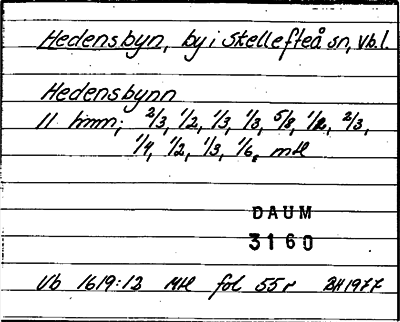 Hedensbyn, by i Skellefteå sn, Vb. l.
Hedensbynn
11 hmm; 2/3, 1/2, 1/3, 1/3, 5/8, 1/12, 2/3,
1/4, 1/2, 1/3, 1/6, mtl
DAUM
3160
Vb 1619:13 Mtl fol 55r BH 1977